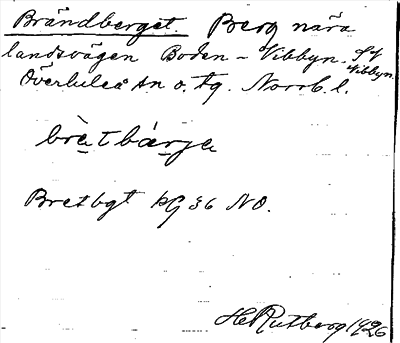 Brändberget. Berg nära
landsvägen Boden - Vibbyn. SV Vibbyn.
Överluleå sn o. tg. Norrb. l.
brètbárja
Bretbgt bG 36 NO.
H. Rutberg 1926